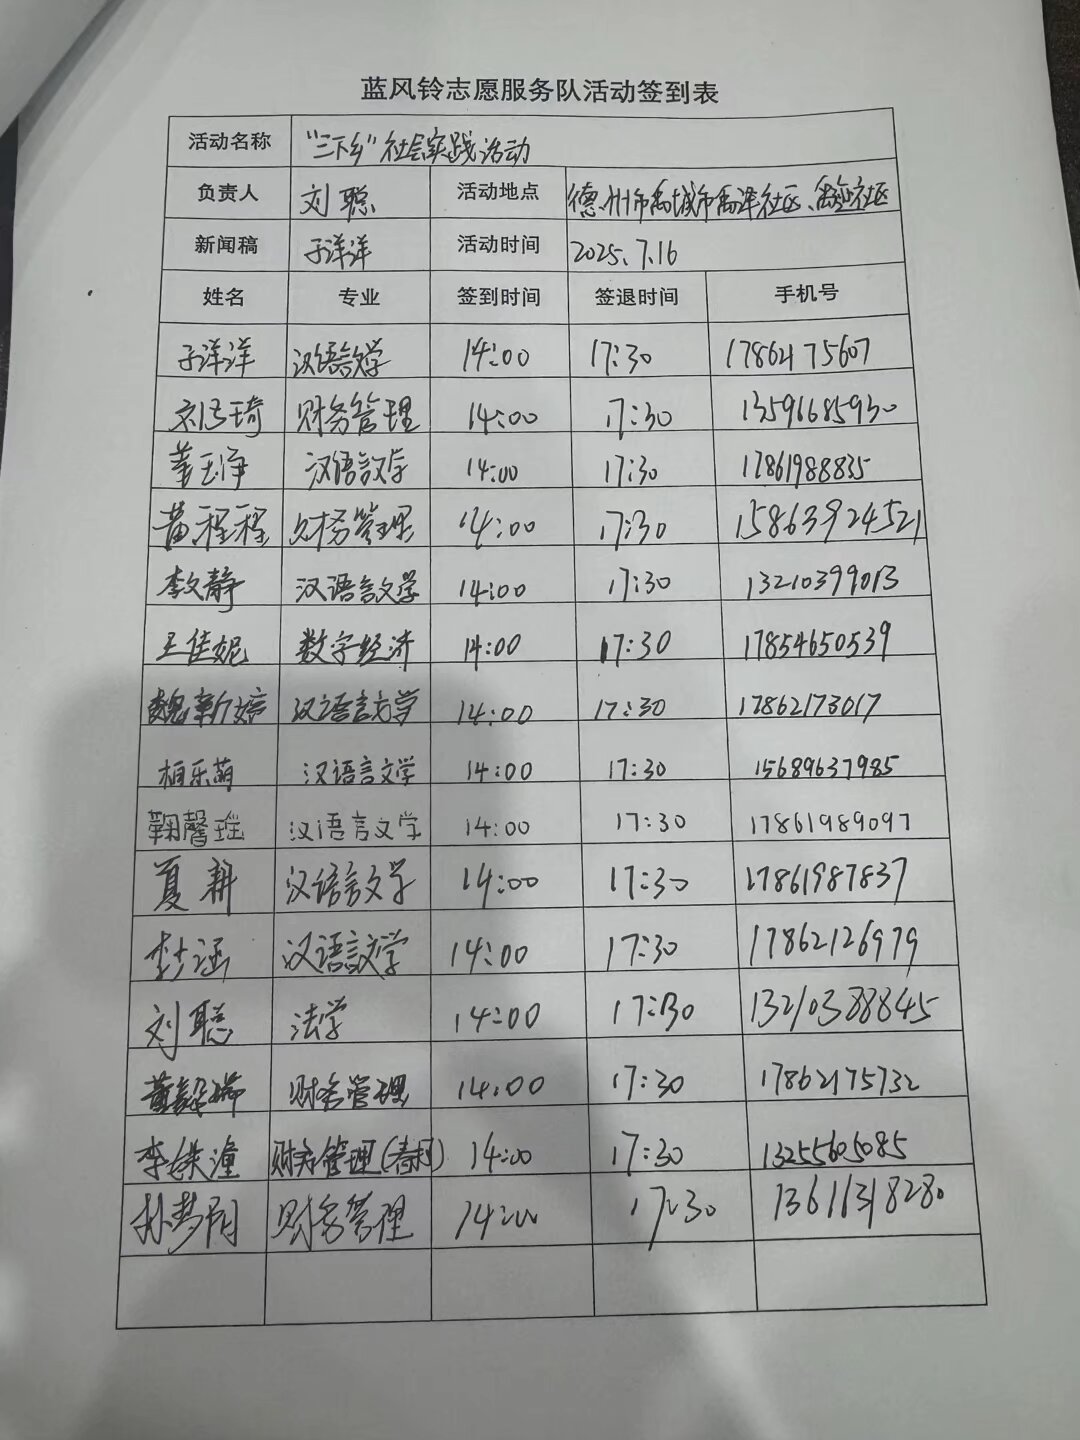 蓝风铃志愿服务队活动签到表
活动名称 "三下乡"社会实践活动
负责人 刘聪 活动地点 德州市禹城市禹泽社区、社区
新闻稿 于洋洋 活动时间 2025.7.16
姓名 专业 签到时间 签退时间 手机号
于洋洋 汉语言文学 14:00 17:30 17862175607
财务管理 14:00 17:30 13591685930
董玉净 汉语言文学 14:00 17:30 17861988835
黄程程 财务管理 14:00 17:30 15863924521
李文静 汉语言文学 14:00 17:30 13210399013
王佳妮 数字经济 14:00 17:30 17854650539
魏新婷 汉语言文学 14:00 17:30 17862173017
柏乐萌 汉语言文学 14:00 17:30 15689637985
鞠馨瑶 汉语言文学 14:00 17:30 17861989097
夏耕 汉语言文学 14:00 17:30 17861987837
李涵 汉语言文学 14:00 17:30 17862126979
刘聪 法学 14:00 17:30 13210388845
财务管理 14:00 17:30 17862175732
李潼 财务管理(春招) 14:00 17:30 13255605085
孙梦阳 财务管理 14:00 17:30 13611318280